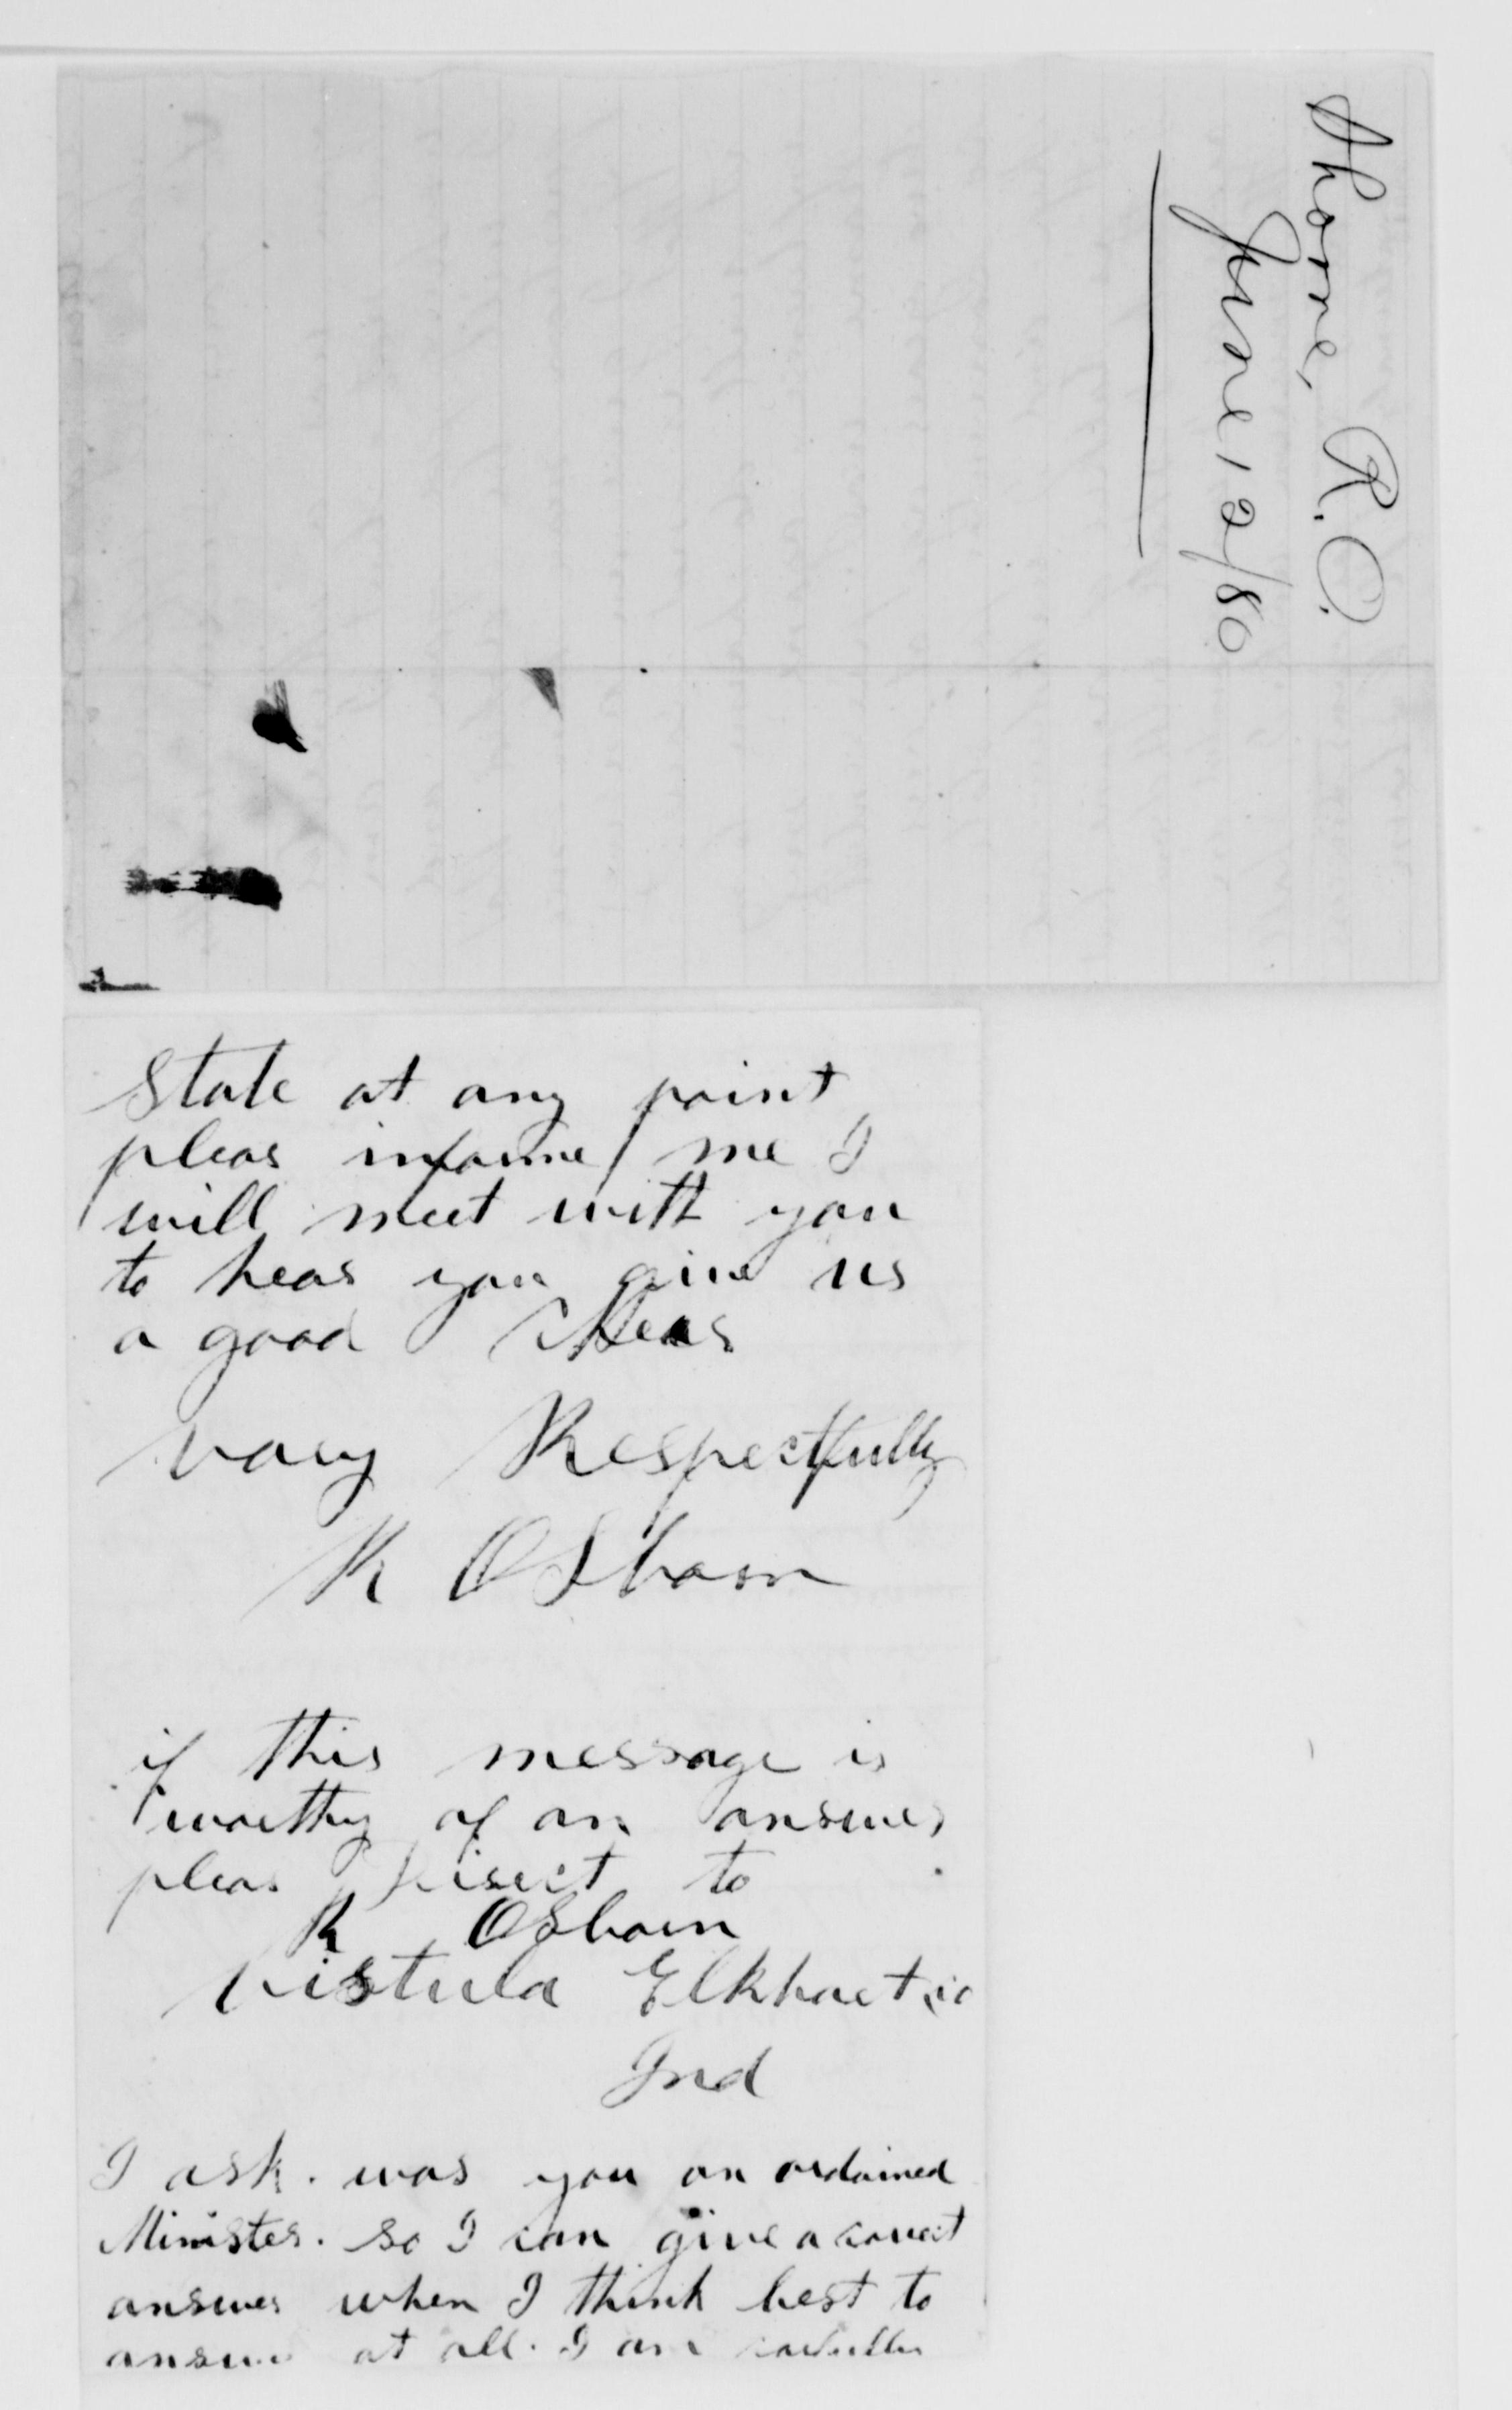 Thorne, R. O.
June 12/80
State at any point
pleas informe me I
will meet with you
to hear you give us
a good
vary Respectfully
R OSborn
if this message is
worthy of an answer
pleas Direct to
R OSborn
Vistula Elkhart co
Ind
I ask. was you an ordained
Minister. so I can give a corect
answer when I think best to
answer at all. I am carfulley